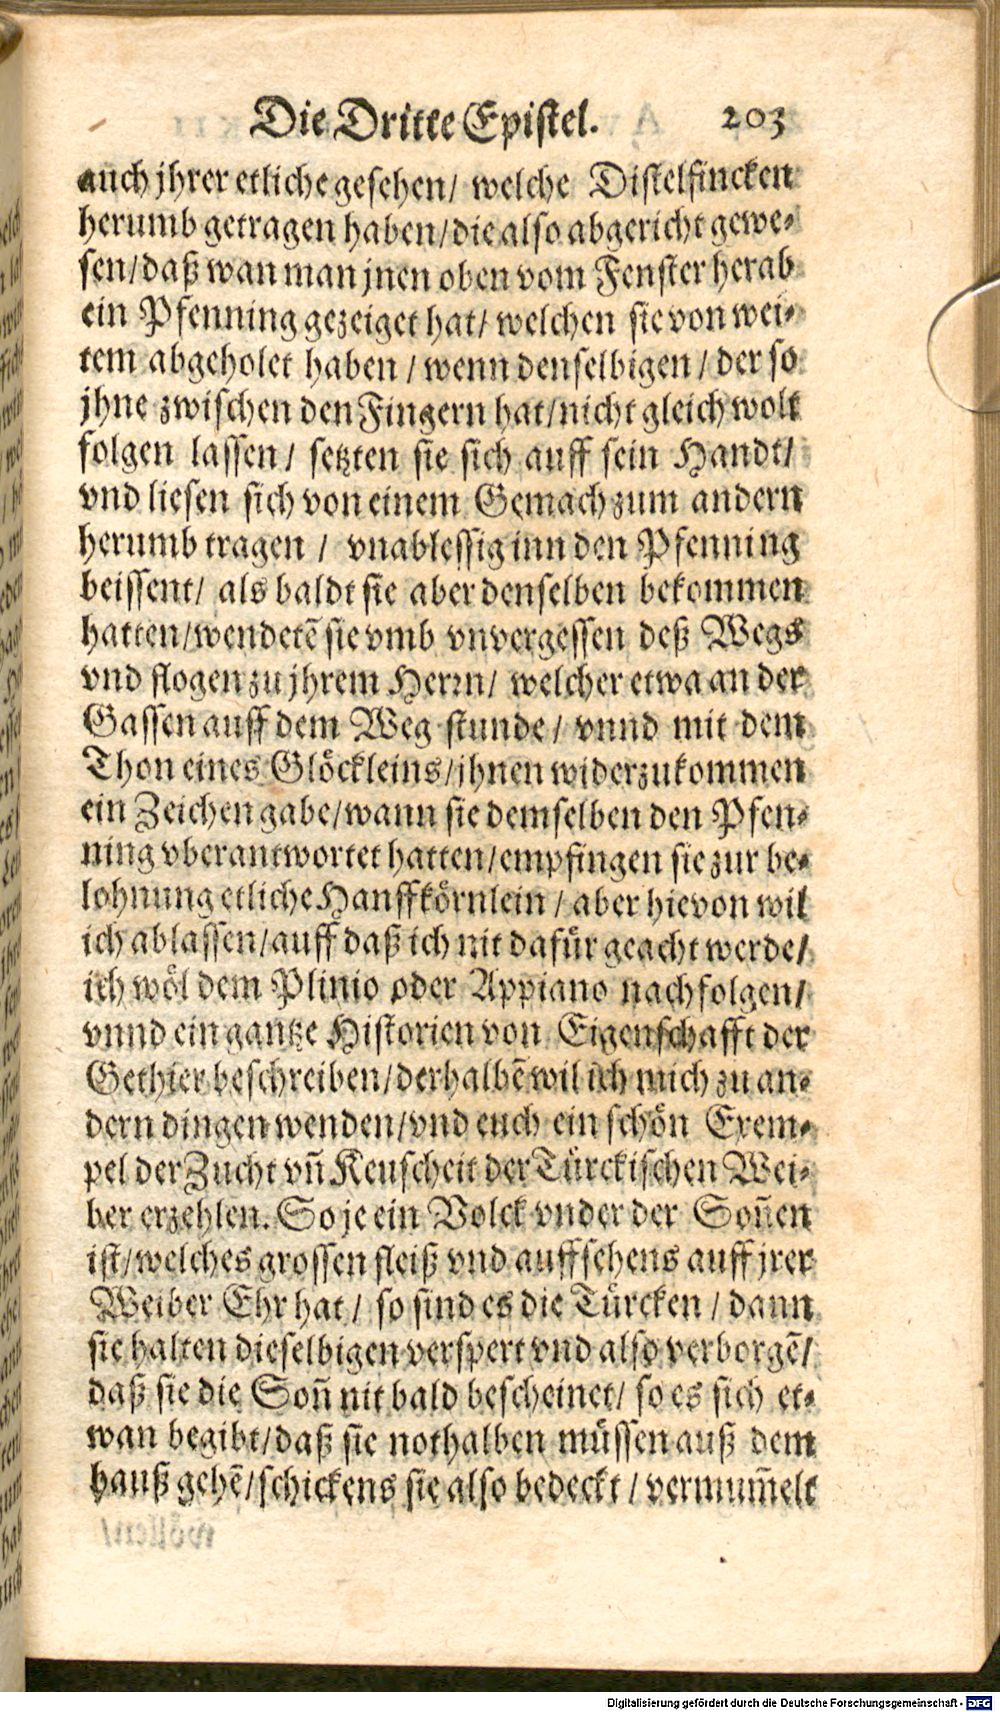 Die Dritte Epistel. 203
auch jhrer etliche gesehen/ welche Distelfincken
herumb getragen haben/die also abgericht gewe-
sen/daß wan man jnen oben vom Fenster herab
ein Pfenning gezeiget hat/ welchen sie von wei-
tem abgeholet haben / wenn denselbigen / der so
jhne zwischen den Fingern hat/nicht gleich wolt
folgen lassen/ setzten sie sich auff sein Handt/
vnd liesen sich von einem Gemach zum andern
herumb tragen / vnablessig inn den Pfenning
beissent/ als baldt sie aber denselben bekommen
hatten/wendetẽ sie vmb vnvergessen deß Wegs
vnd flogen zu jhrem Herrn/ welcher etwa an der
Gassen auff dem Weg stunde/ vnnd mit dem
Thon eines Glöckleins/ihnen widerzukommen
ein Zeichen gabe/wann sie demselben den Pfen-
ning vberantwortet hatten/empfingen sie zur be-
lohnung etliche Hanffkörnlein / aber hievon wil
ich ablassen/auff daß ich nit dafür geacht werde/
ich wöl dem Plinio oder Appiano nachfolgen/
vnnd ein gantze Historien von Eigenschafft der
Gethier beschreiben/derhalbẽ wil ich mich zu an-
dern dingen wenden/vnd euch ein schön Exem-
pel der Zucht vñ Keuscheit der Türckischen Wei-
ber erzehlen. So je ein Volck vnder der Soñen
ist/welches grossen fleiß vnd auffsehens auff jrer
Weiber Ehr hat/ so sind es die Türcken / dann
sie halten dieselbigen verspert vnd also verborgẽ/
daß sie die Soñ nit bald bescheinet/ so es sich et-
wan begibt/daß sie nothalben müssen auß dem
hauß gehẽ/schickens sie also bedeckt / vermum̃elt
Digitalisierung gefördert durch die Deutsche Forschungsgemeinschaft - DFG